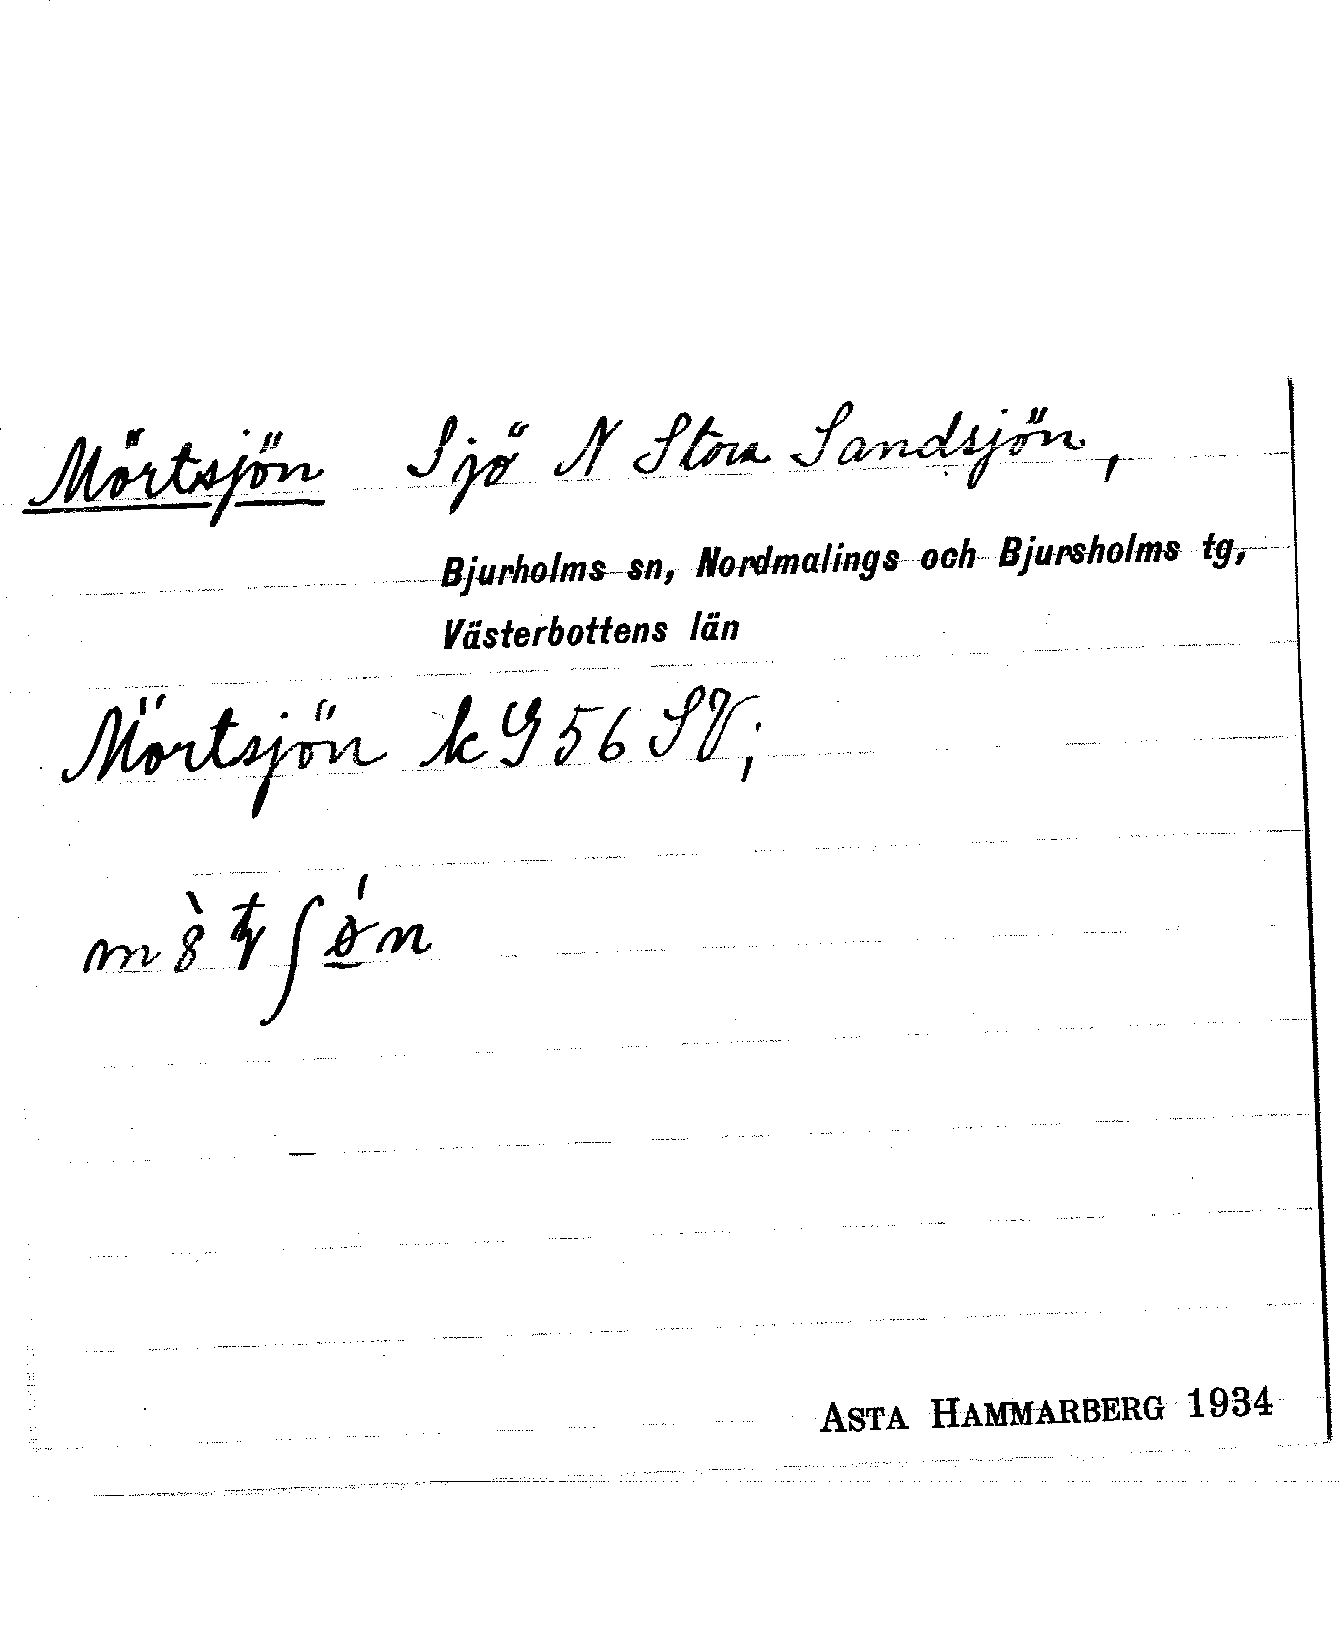 Mörtsjön Sjö N Stora Sandsjön,
Bjurholms sn, Nordmalings och Bjursholms tg,
Västerbottens län
Mörtsjön kG 56 SV;
ASTA HAMMARBERG 1934